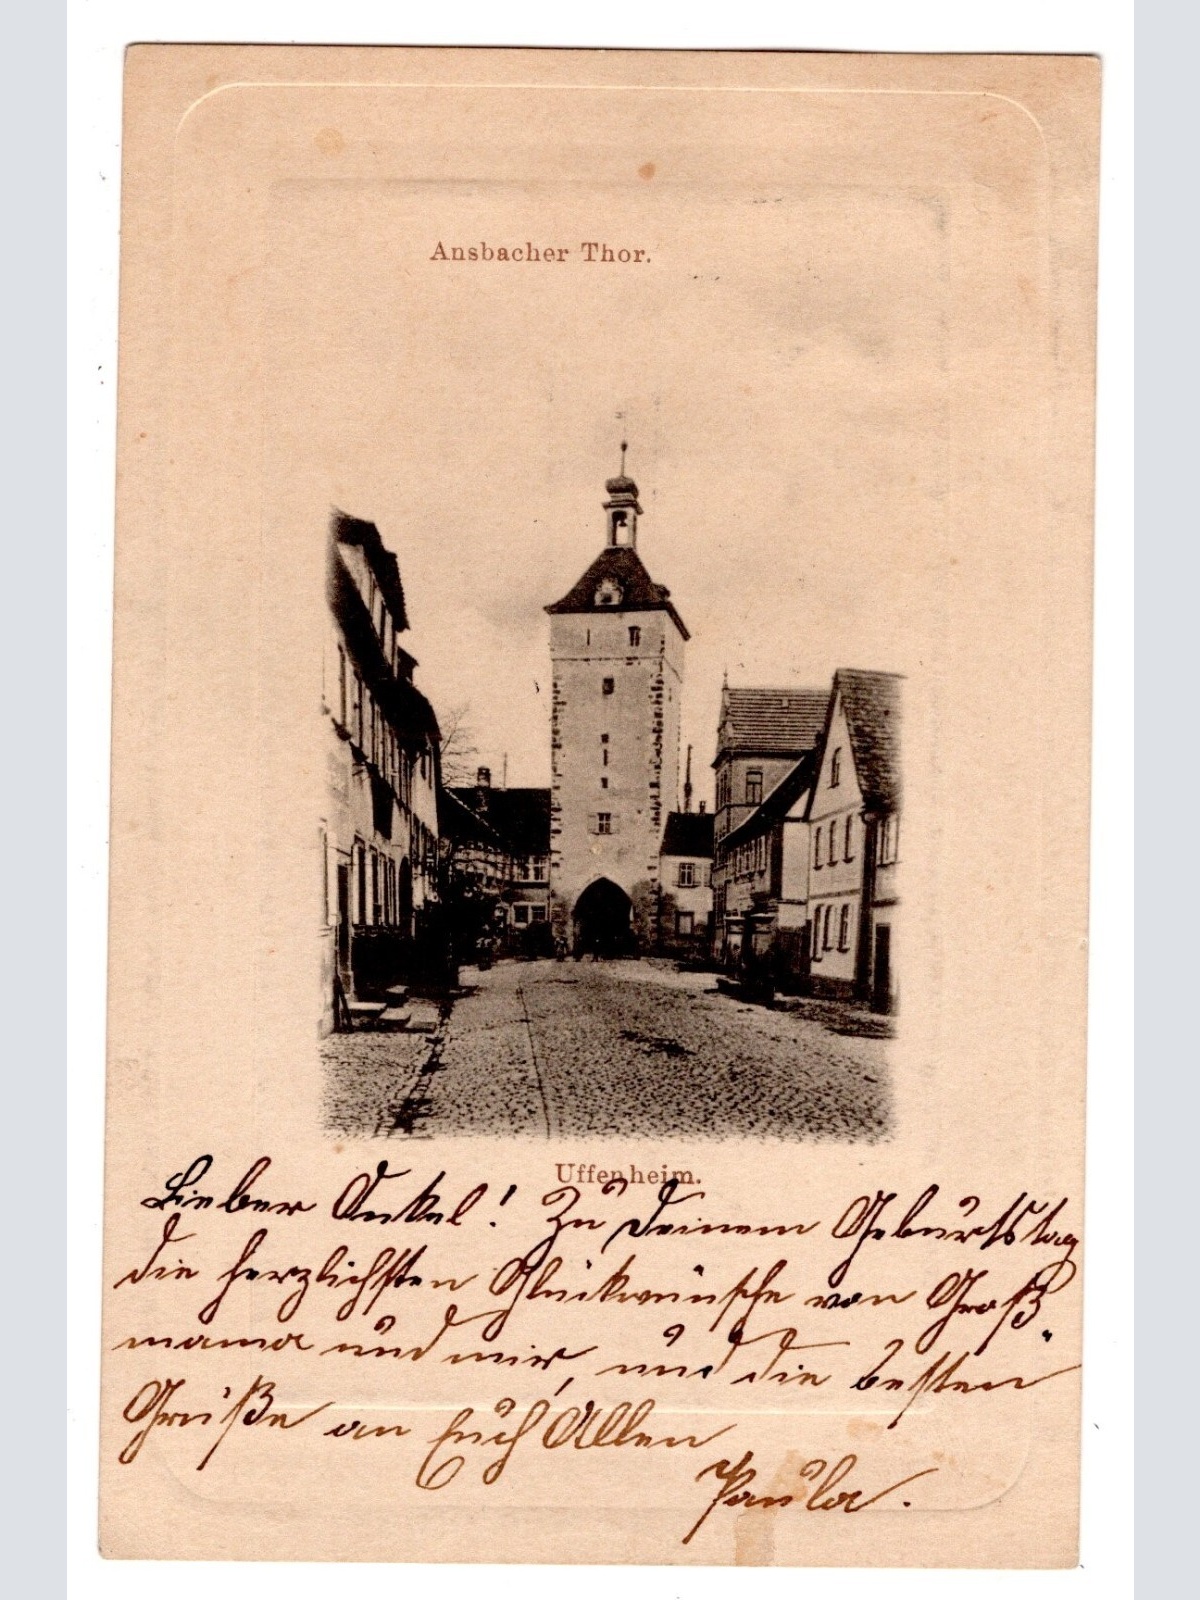 Ansbacher Thor.
Uffenheim.
Lieber Onkel! Zu Deinem Geburtstag
die herzlichsten Glückwünsche von Groß„
mama und mir, und die besten
Grüße an Euch Allen
Paula.